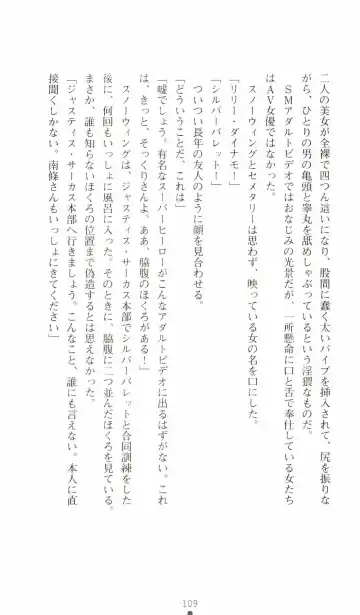 二人の美女が全裸で四つん這いになり、股間に蠢く太いバイブを挿入され、尻を振りな
がら、ひとりの男の亀頭と睾丸を舐めしゃぶっているという淫猥なものだ。
　ＳＭアダルトビデオではおなじみの光景だが、一所懸命に口と舌で奉仕している女たち
はＡＶ女優ではなかった。
　スノーウィングとセメタリーは思わず、映っている女の名を口にした。
「リリー・ダイナモ！」
「シルバーバレット！」
　ついつい長年の友人のように顔を見合わせる。
「どういうことだ、これは」
「嘘でしょう。有名なスーパーヒーローがこんなアダルトビデオに出るはずがない。これ
は、きっと、そっくりさんよ。ああ、脇腹のほくろがある！」
　スノーウィングは、ジャスティス・サーカス本部でシルバーバレットと合同訓練をした
後に、何回もいっしょに風呂に入った。そのときに、脇腹に二つ並んだほくろを見ている。
まさか、誰も知らないほくろの位置まで偽造するとは思えなかった。
「ジャスティス・サーカス本部へ行きましょう。こんなこと、誰にも言えない。本人に直
接聞くしかない。南條さんもいっしょにきてください」
109